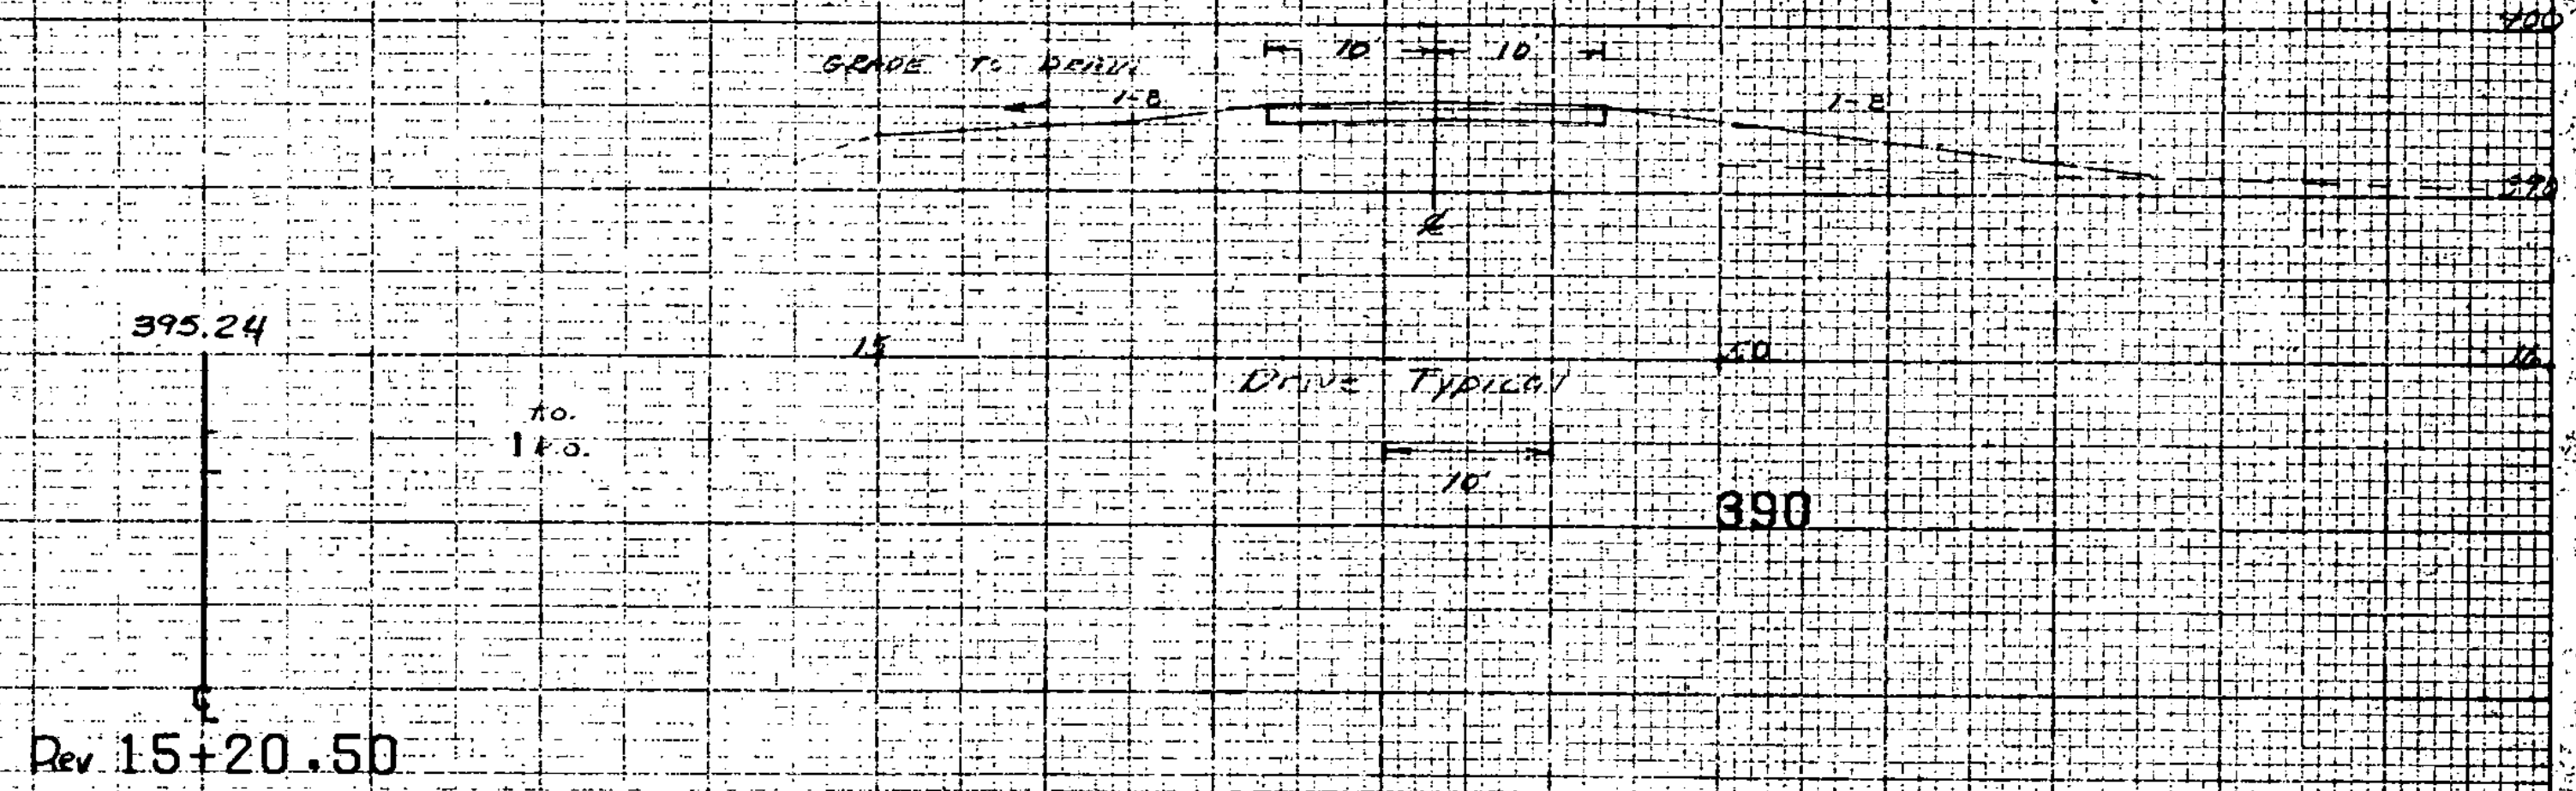 400
10' 10'
GRADE TO DRAIN
1-8 1-8
390
℄
395.24
15 50 16
DRIVE TYPICAL
10'
390
℄
Rev 15+20.50